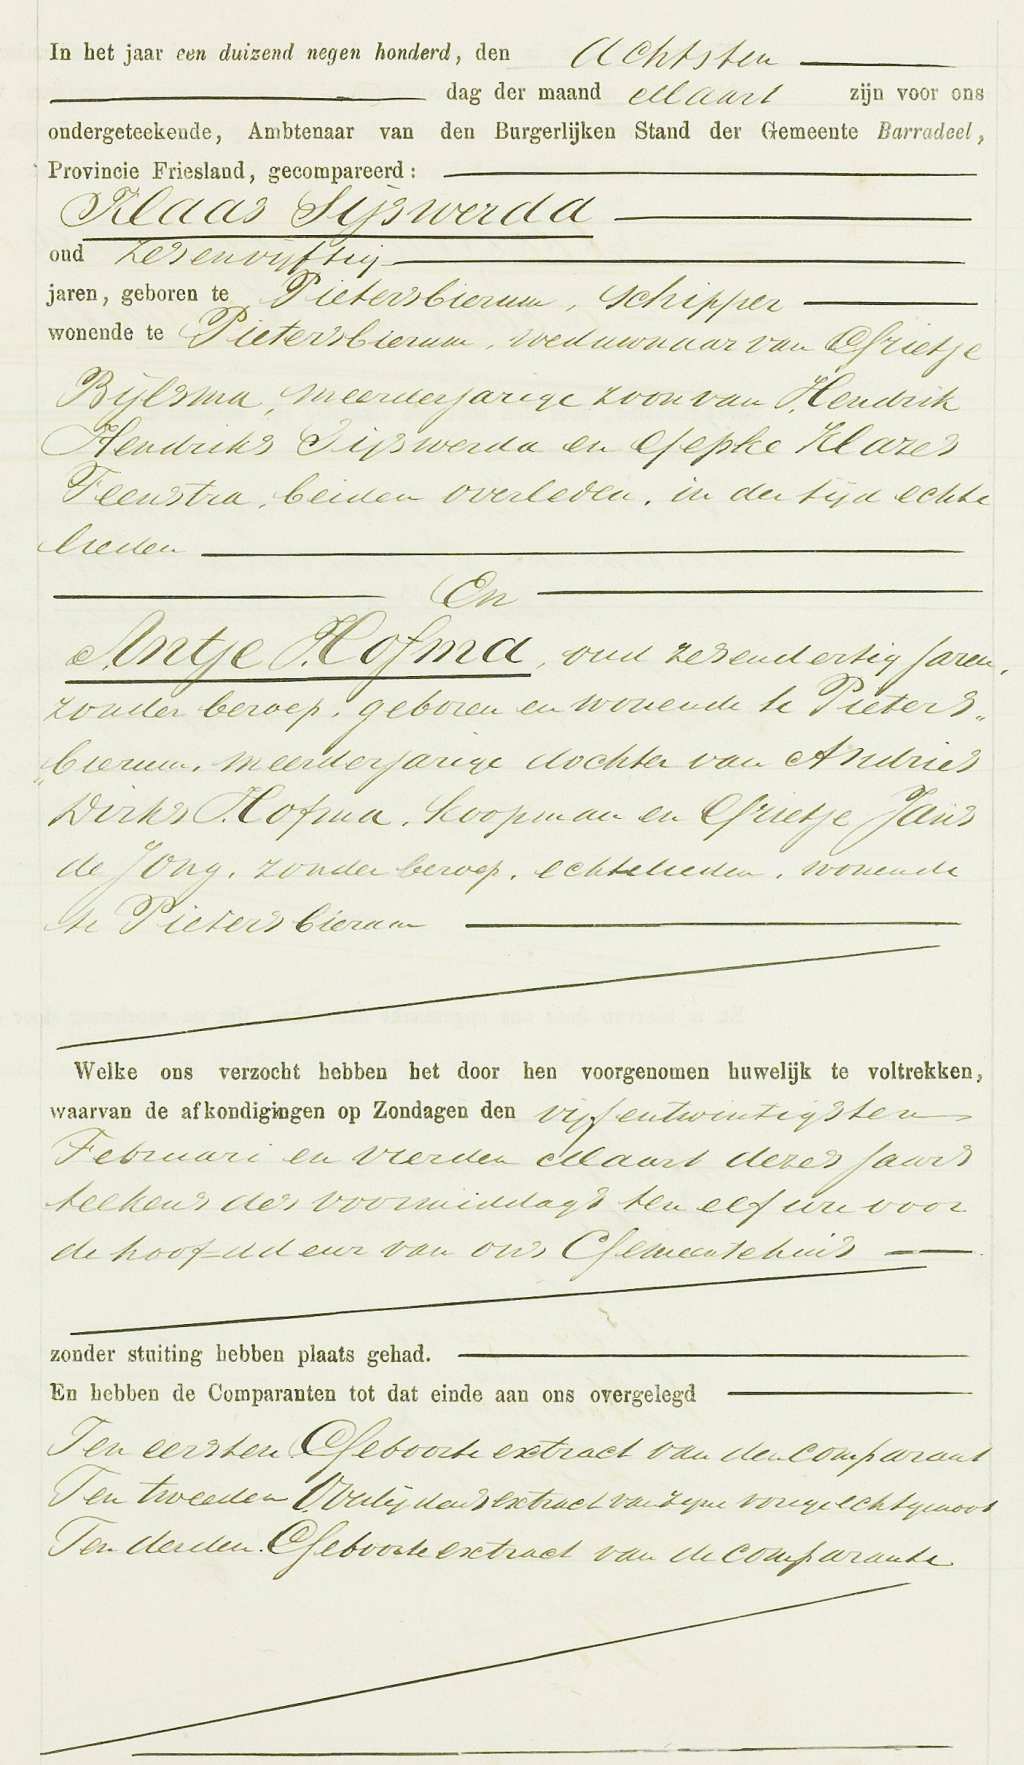 In het jaar een duizend negen honderd, den Achtsten
dag der maand Maart zijn voor ons
ondergeteekende, Ambtenaar van den Burgerlijken Stand der Gemeente Barradeel,
Provincie Friesland, gecompareerd:
Klaas Sijswerda
oud zesenvijftig
jaren, geboren te Pietersbierum, schipper
wonende te Pietersbierum, weduwnaar van Grietje
Bijlsma, meerderjarige zoon van Hendrik
Hendriks Sijswerda en Gepke Klazes
Feenstra, beiden overleden, in der tijd echte
lieden
En
Antje Hofma, oud zesendertig jaren,
zonder beroep, geboren en wonende te Pieters„
„bierum, meerderjarige dochter van Andries
Dirks Hofma, koopman en Grietje Jans
de Jong, zonder beroep, echtelieden, wonende
te Pietersbierum
Welke ons verzocht hebben het door hen voorgenomen huwelijk te voltrekken,
waarvan de afkondigingen op Zondagen den vijfentwintigsten
Februari en vierden Maart dezes jaars
telkens des voormiddags ten elf ure voor
de hoofddeur van ons Gemeentehuis
zonder stuiting hebben plaats gehad.
En hebben de Comparanten tot dat einde aan ons overgelegd
Ten eersten Geboorte extract van den comparant
Ten tweeden Overlijdens extract van zijne vorige echtgenoot
Ten derden Geboorte extract van de comparante